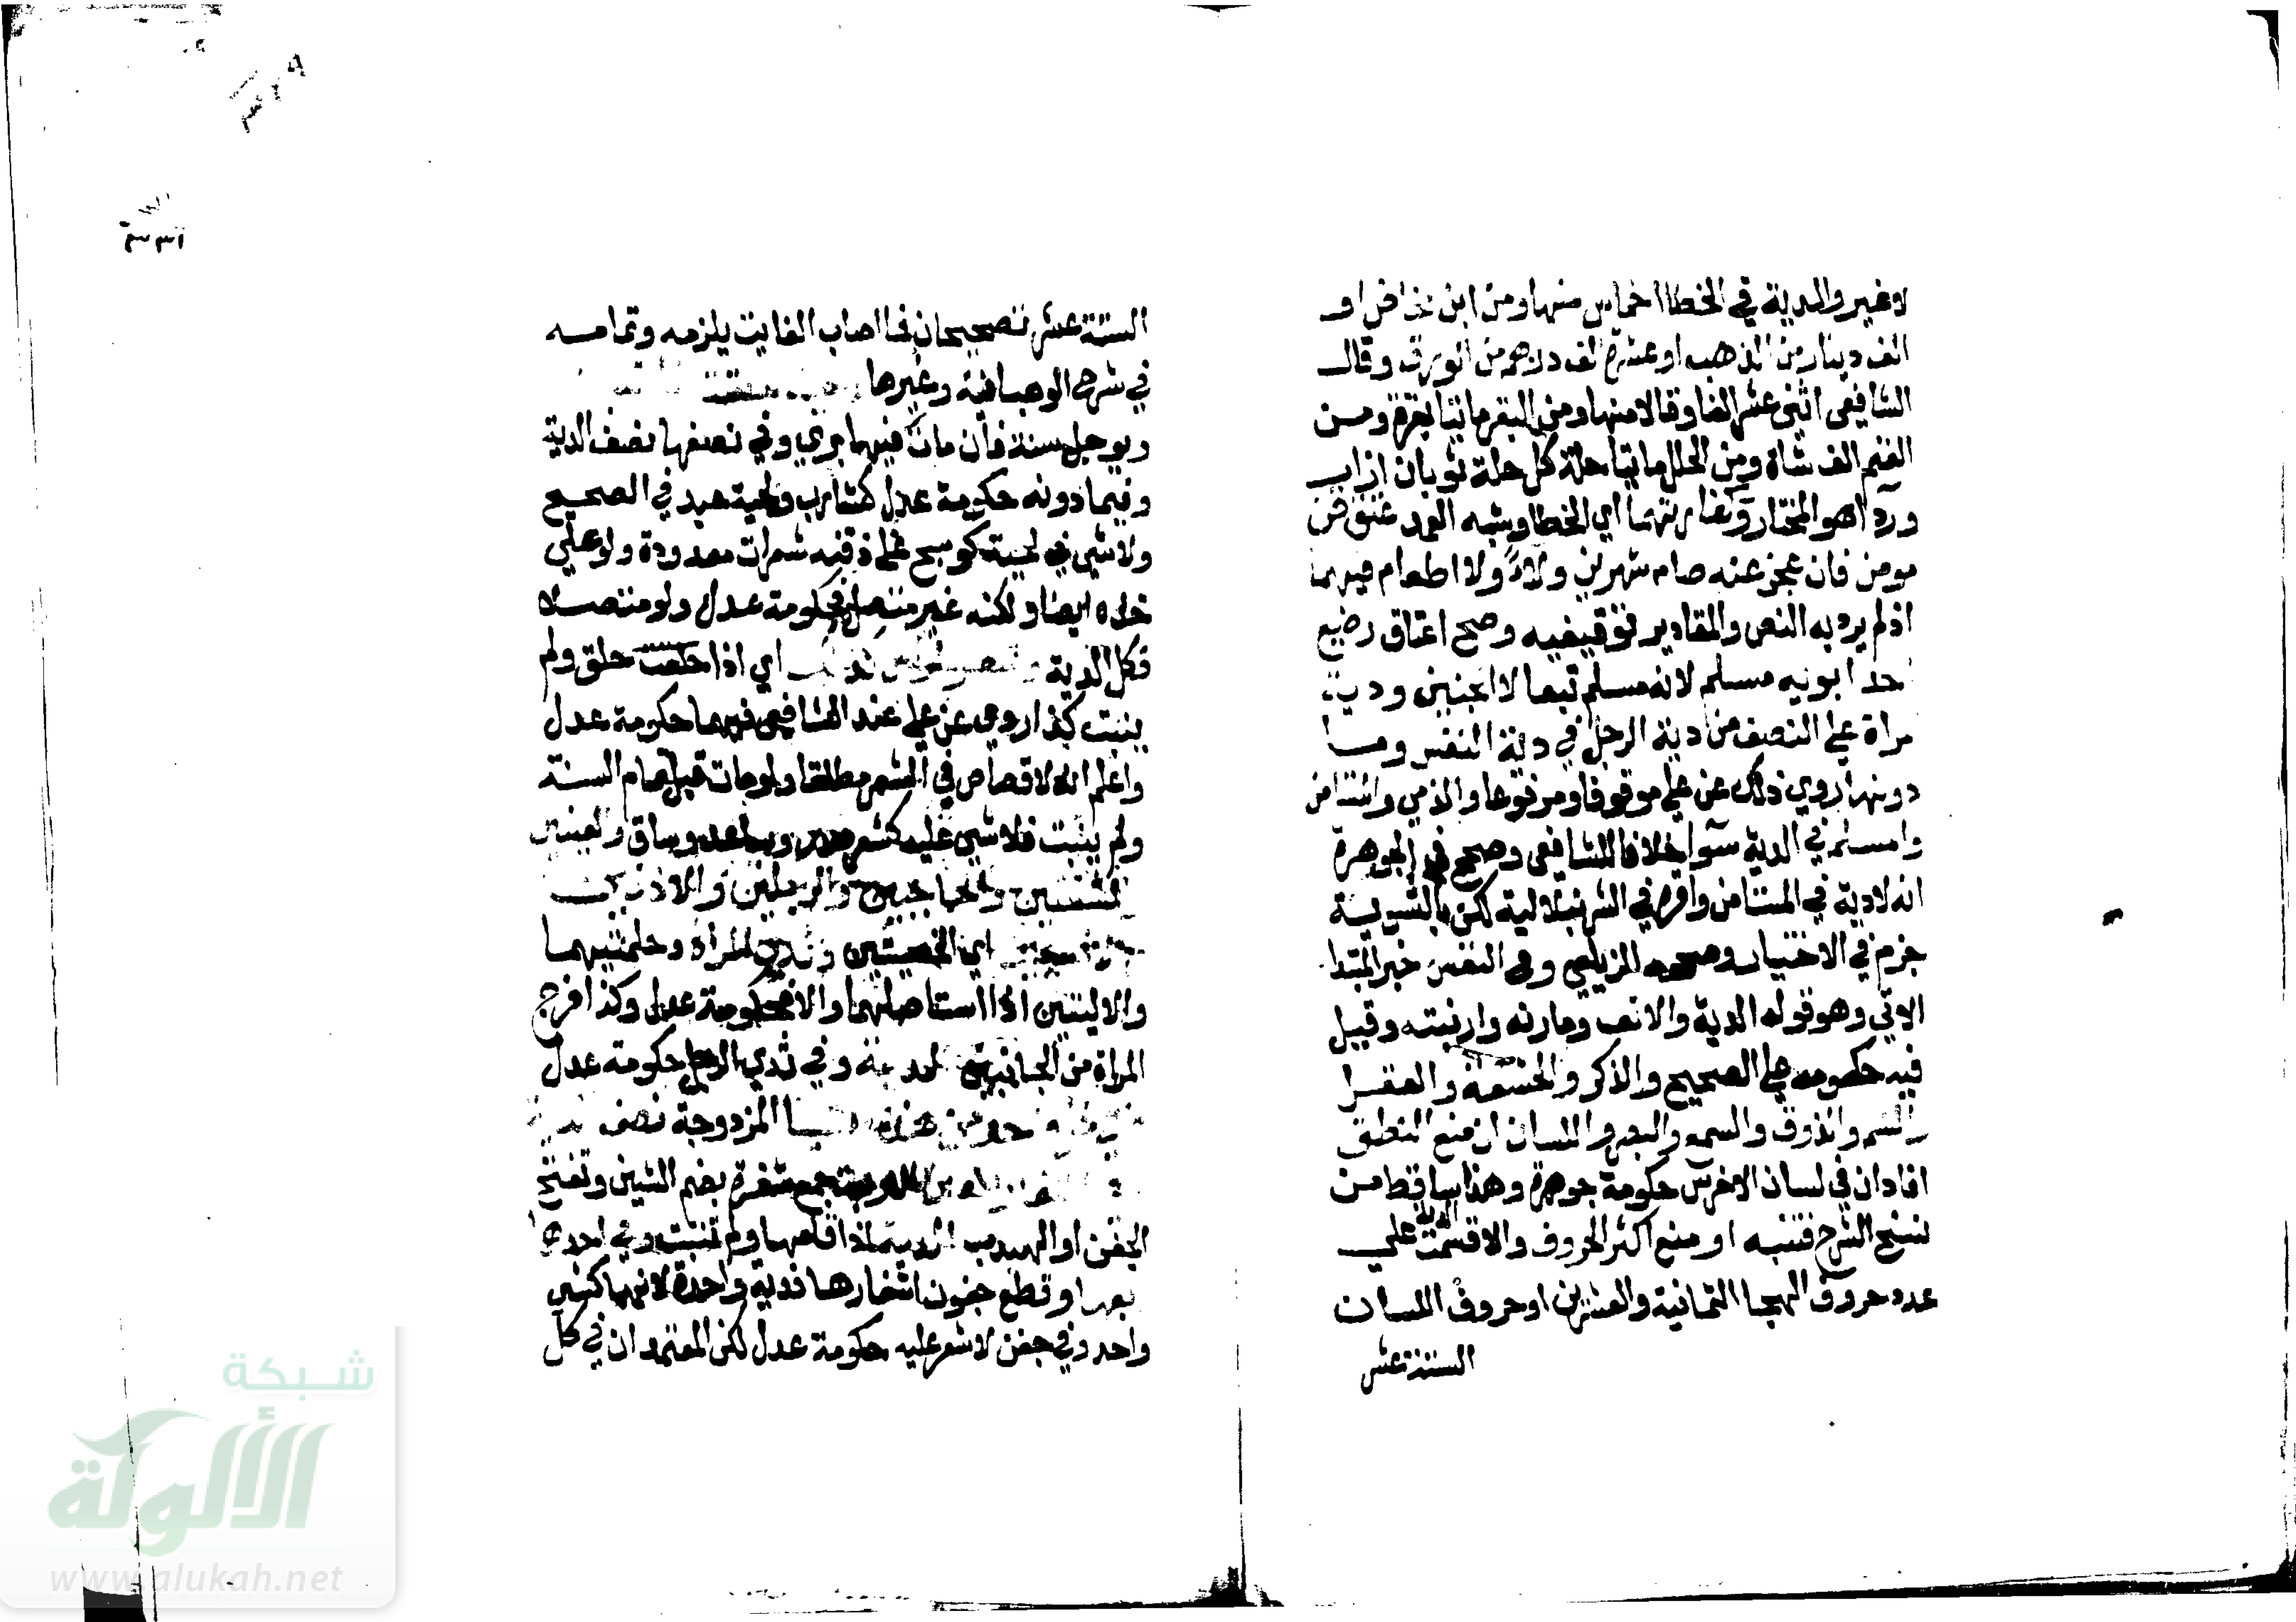 لاغير والدية في الخطا اخماس منها ومن ابن مخاض او
الف دينار من الذهب او عشرة الف درهم من الورق وقال
الشافعي اثنى عشر الفا وقالا منها ومن البقر مايتا بقرة ومن
الغنم الف شاة ومن الحلل مايتا حلة كل حلة ثوبان ازار
وردا هو المختار وكفارتهما اي الخطا وشبه العمد عتق قن
مومن فان عجز عنه صام شهرين ولاءً ولا اطعام فيهما
اذ لم يرد به النص والمقادير توقيفيه وصح اعتاق رضيع
احد ابويه مسلم لانه مسلم تبعا لا الجنين ودية
مراة على النصف من دية الرجل في دية النفس وما
دونها روي ذلك عن علي موقوفا ومرفوعا والذمي والمستامن
والمسلم في الدية سوا خلافا للشافعي وصحح في الجوهرة
انه لادية في المستامن واقره في الشرنبلالية لكن بالتسوية
جزم في الاختيار وصححه الزيلعي وفي النفس خبر المبتدا
الاتي وهو قوله الدية والانف ومارنه وارنبته وقيل
فيه حكومه على الصحيح والذكر والحشفة والعقل
والشم والذوق والسمع والبصر واللسان ان منع النطق
افاد ان في لسان الاخرس حكومة جوهرة وهذا ساقط من
نسخ الشرح فتنبه او منع اكثر الحروف والا قسمت الدية على
عدد حروف الهجا الثمانية والعشرين او حروف اللسان
الستة عشر
الستة عشر تصحيحان فما اصاب الفايت يلزمه وتمامه
في شرح الوهبانية وغيرها
ويوجل سنة فان مات فيها بري وفي نصفها نصف الدية
وفيما دونه حكومة عدل كشارب ولحية عبد في الصحيح
ولا شي في لحية كوسج على ذقنه شعرات معدودة ولو على
خده ايضا ولكنه غير متصل فحكومة عدل ولو متصلا
فكل الدية اي اذا حلقت حلق ولم
ينبت كذا روي عن علي عند الشافعي فيهما حكومة عدل
واعلم انه لاقصاص في الشعر مطلقا ولو مات قبل تمام السنة
ولم ينبت فلا شي عليه كشعر صدر وساعد وساق والعينين
الشفتين والحاجبين والرجلين والاذنين
اي الخصيتين وثدي المراة وحلمتيهما
والاليتين اذا استاصلهما والا فحكومة عدل وكذا فرج
المراة من الجانبين الدية وفي ثدي الرجل حكومة عدل
المزدوجة نصف
جمع شفرة بضم الشين وتفتح
الجفن او الهدب الدية اذا قلعها ولم تنبت وفي احدها
بعها ولو قطع جفون اشفارها فدية واحدة لانهما كشي
واحد وفي جفن لاشعر عليه حكومة عدل لكن المعتمد ان في كل
شبكة
الألوكة
www.alukah.net